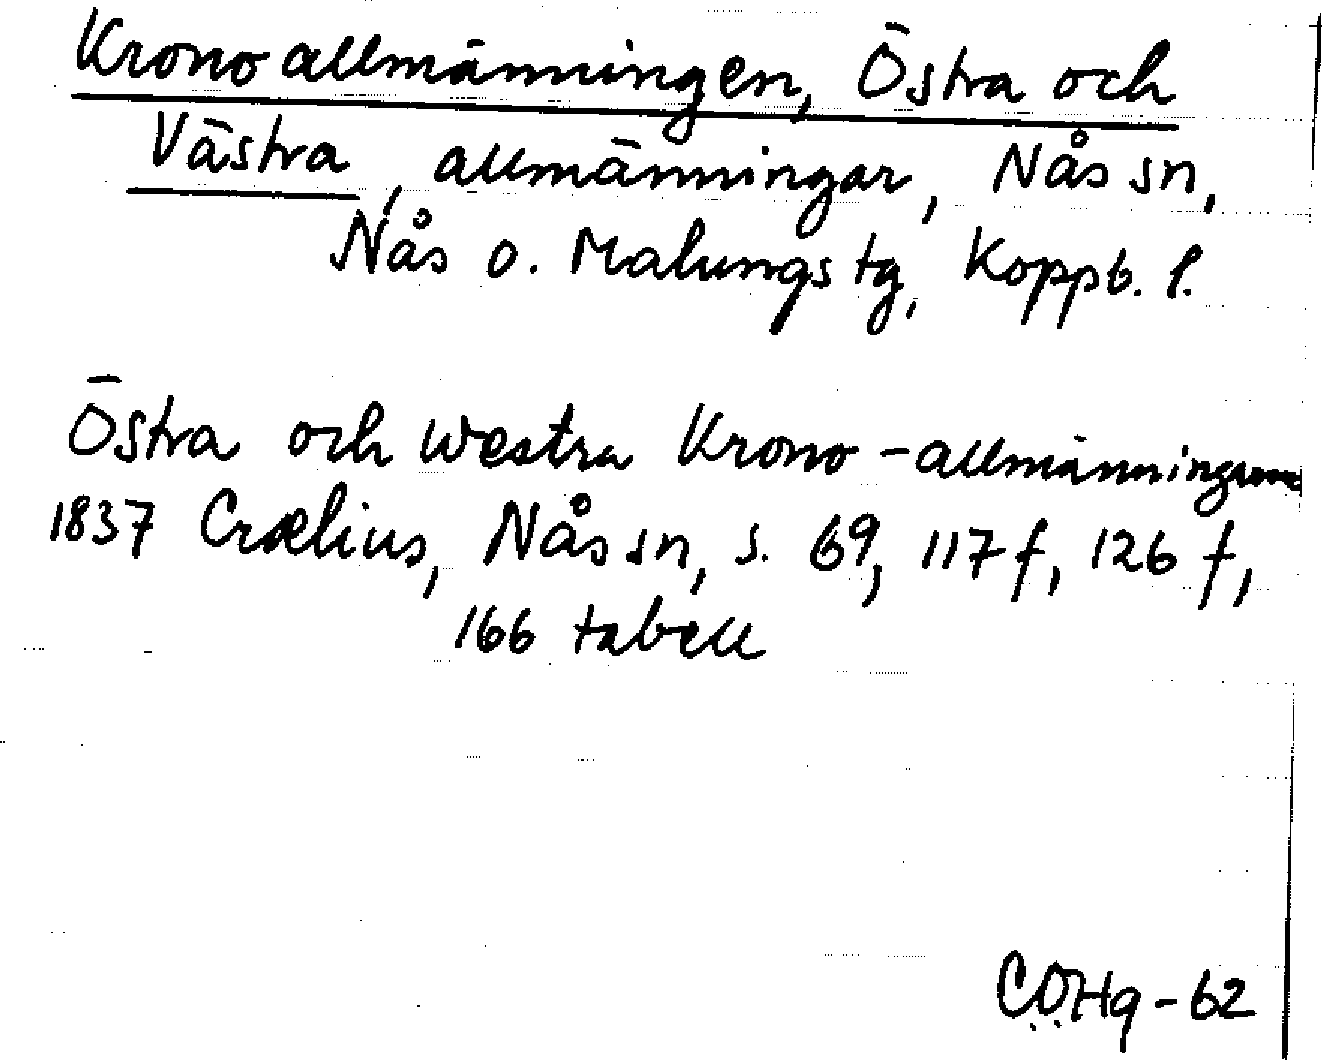 Kronoallmänningen, Östra och
Västra, allmänningar, Nås sn,
Nås o. Malungs tg, Koppb. l.
Östra och Westra Krono-allmänningarne
1837 Crælius, Nås sn, s. 69, 117 f, 126 f,
166 tabell
CÖHg-62